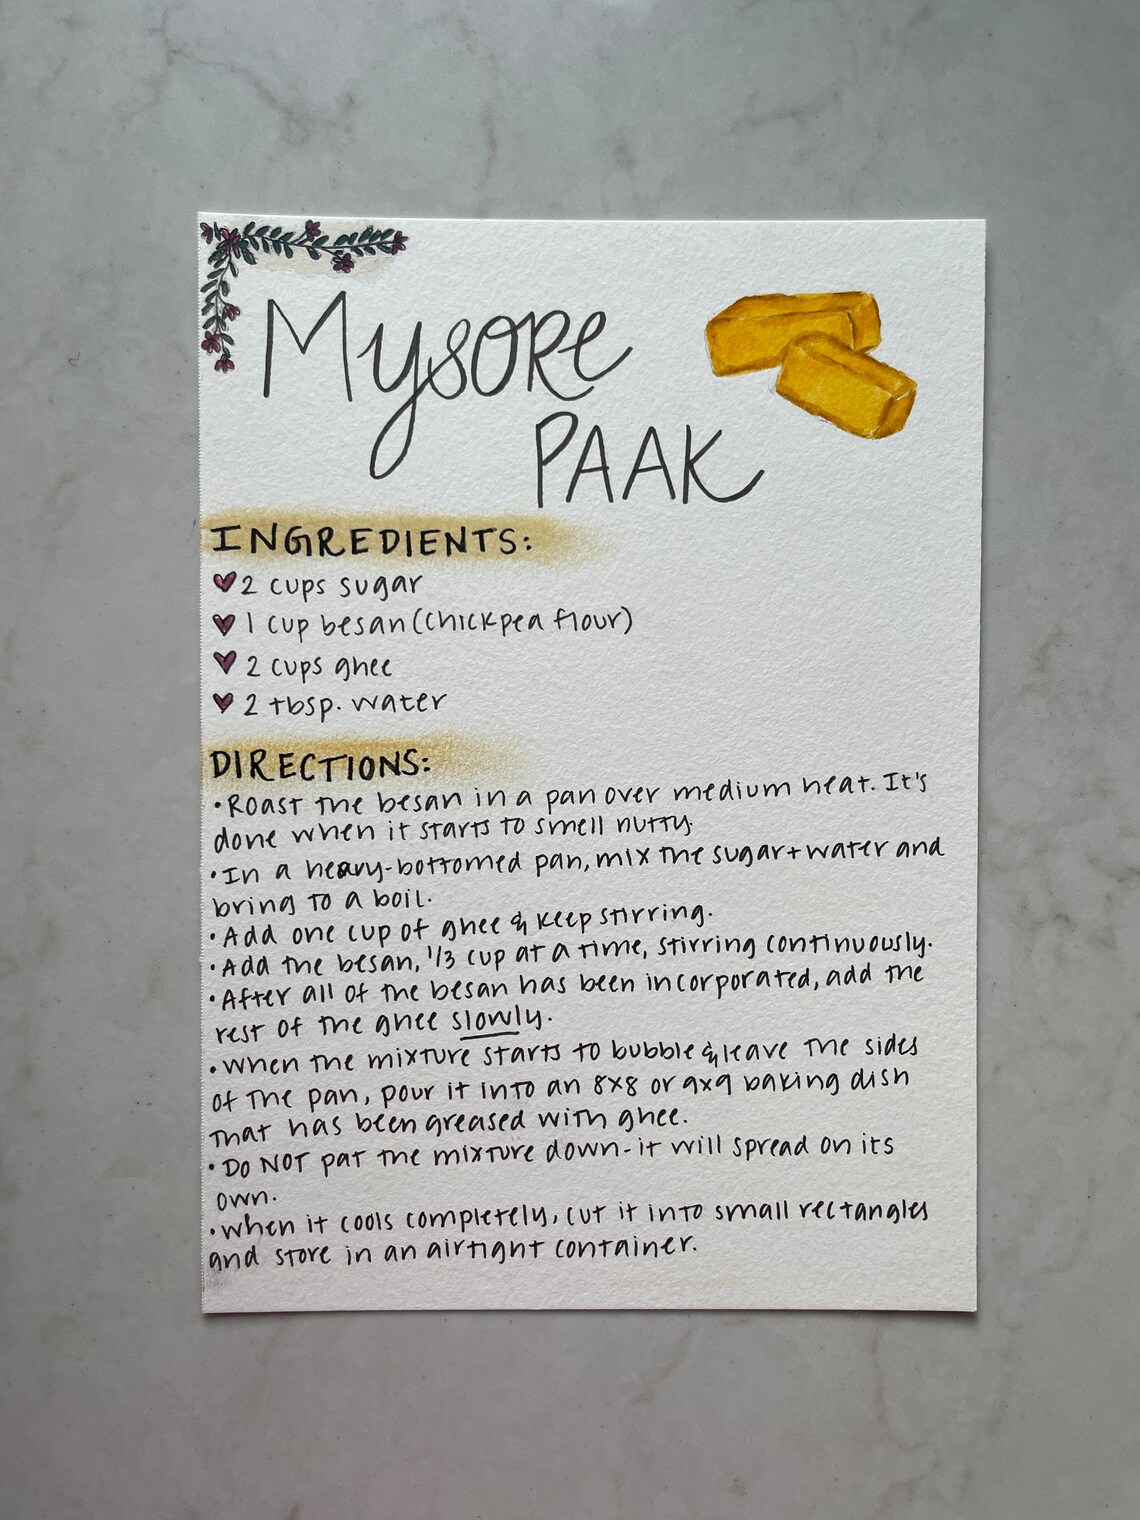 Mysore
PAAK
INGREDIENTS:
2 cups sugar
1 cup besan (chickpea flour)
2 cups ghee
2 tbsp. water
DIRECTIONS:
• Roast the besan in a pan over medium heat. It's
done when it starts to smell nutty.
• In a heavy-bottomed pan, mix the sugar + water and
bring to a boil.
• Add one cup of ghee & keep stirring.
• Add the besan, 1/3 cup at a time, stirring continuously.
• After all of the besan has been incorporated, add the
rest of the ghee slowly.
• When the mixture starts to bubble & leave the sides
of the pan, pour it into an 8x8 or 9x9 baking dish
that has been greased with ghee.
• Do NOT pat the mixture down - it will spread on its
own.
• When it cools completely, cut it into small rectangles
and store in an airtight container.